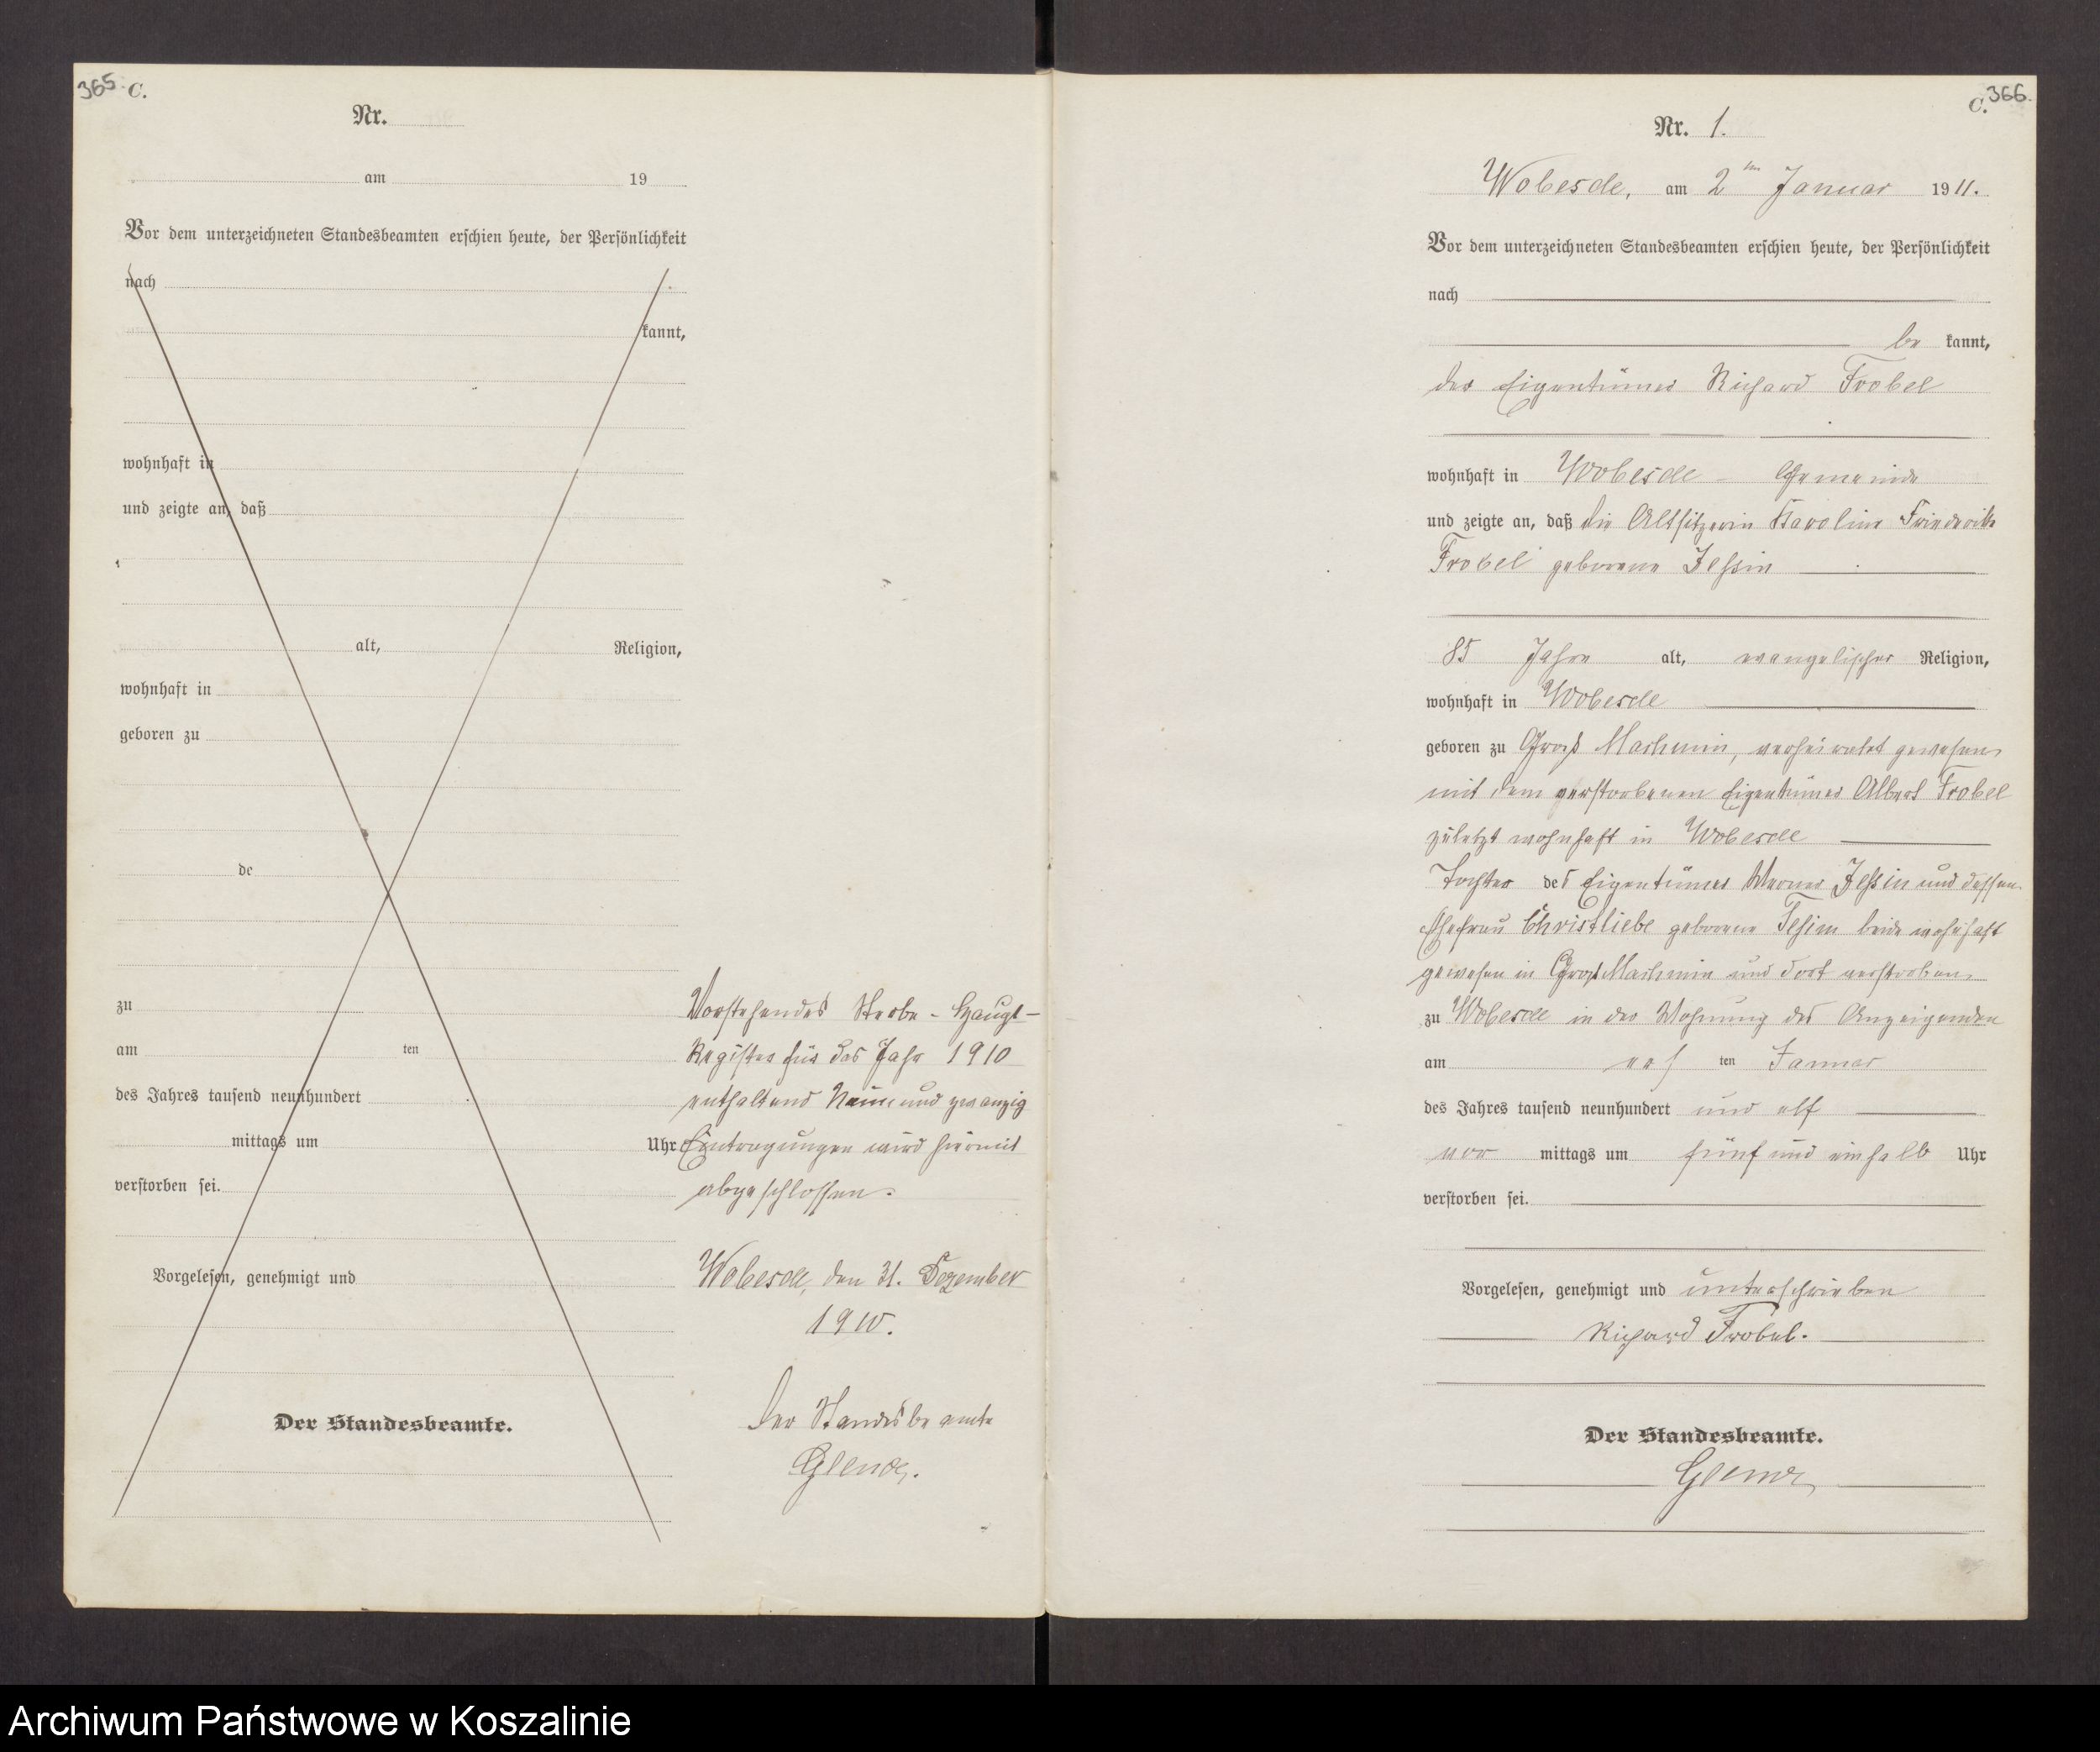 365 C.
Nr.
am 19
Vor dem unterzeichneten Standesbeamten erschien heute, der Persönlichkeit
nach
kannt,
wohnhaft in
und zeigte an, daß
alt, Religion,
wohnhaft in
geboren zu
de
zu
am ten
des Jahres tausend neunhundert
mittags um Uhr
verstorben sei.
Vorgelesen, genehmigt und
Der Standesbeamte.
Vorstehendes Sterbe-Haupt-
Register für das Jahr 1910
enthaltend Neun und zwanzig
Eintragungen wird hiermit
abgeschlossen.
Wobesde, den 31. Dezember
1910.
Der Standesbeamte
C. 366.
Nr. 1.
Wobesde, am 2ten Januar 1911.
Vor dem unterzeichneten Standesbeamten erschien heute, der Persönlichkeit
nach
be kannt,
der Eigentümer Richard Frobel
wohnhaft in Wobesde - Gemeinde
und zeigte an, daß die Altsitzerin Karoline Friederike
Frobel geborene
85 Jahre alt, evangelischer Religion,
wohnhaft in Wobesde
geboren zu Groß Machmin, verheiratet gewesen
mit dem verstorbenen Eigentümer Albert Frobel
zuletzt wohnhaft in Wobesde
Tochter des Eigentümer Werner und dessen
Ehefrau Christliebe geborene beide wohnhaft
gewesen in Groß Machmin und dort verstorben,
zu Wobesde in der Wohnung des Anzeigenden
am ten Januar
des Jahres tausend neunhundert und elf
vor mittags um fünf und einhalb Uhr
verstorben sei.
Vorgelesen, genehmigt und unterschrieben
Richard Frobel.
Der Standesbeamte.
Archiwum Państwowe w Koszalinie